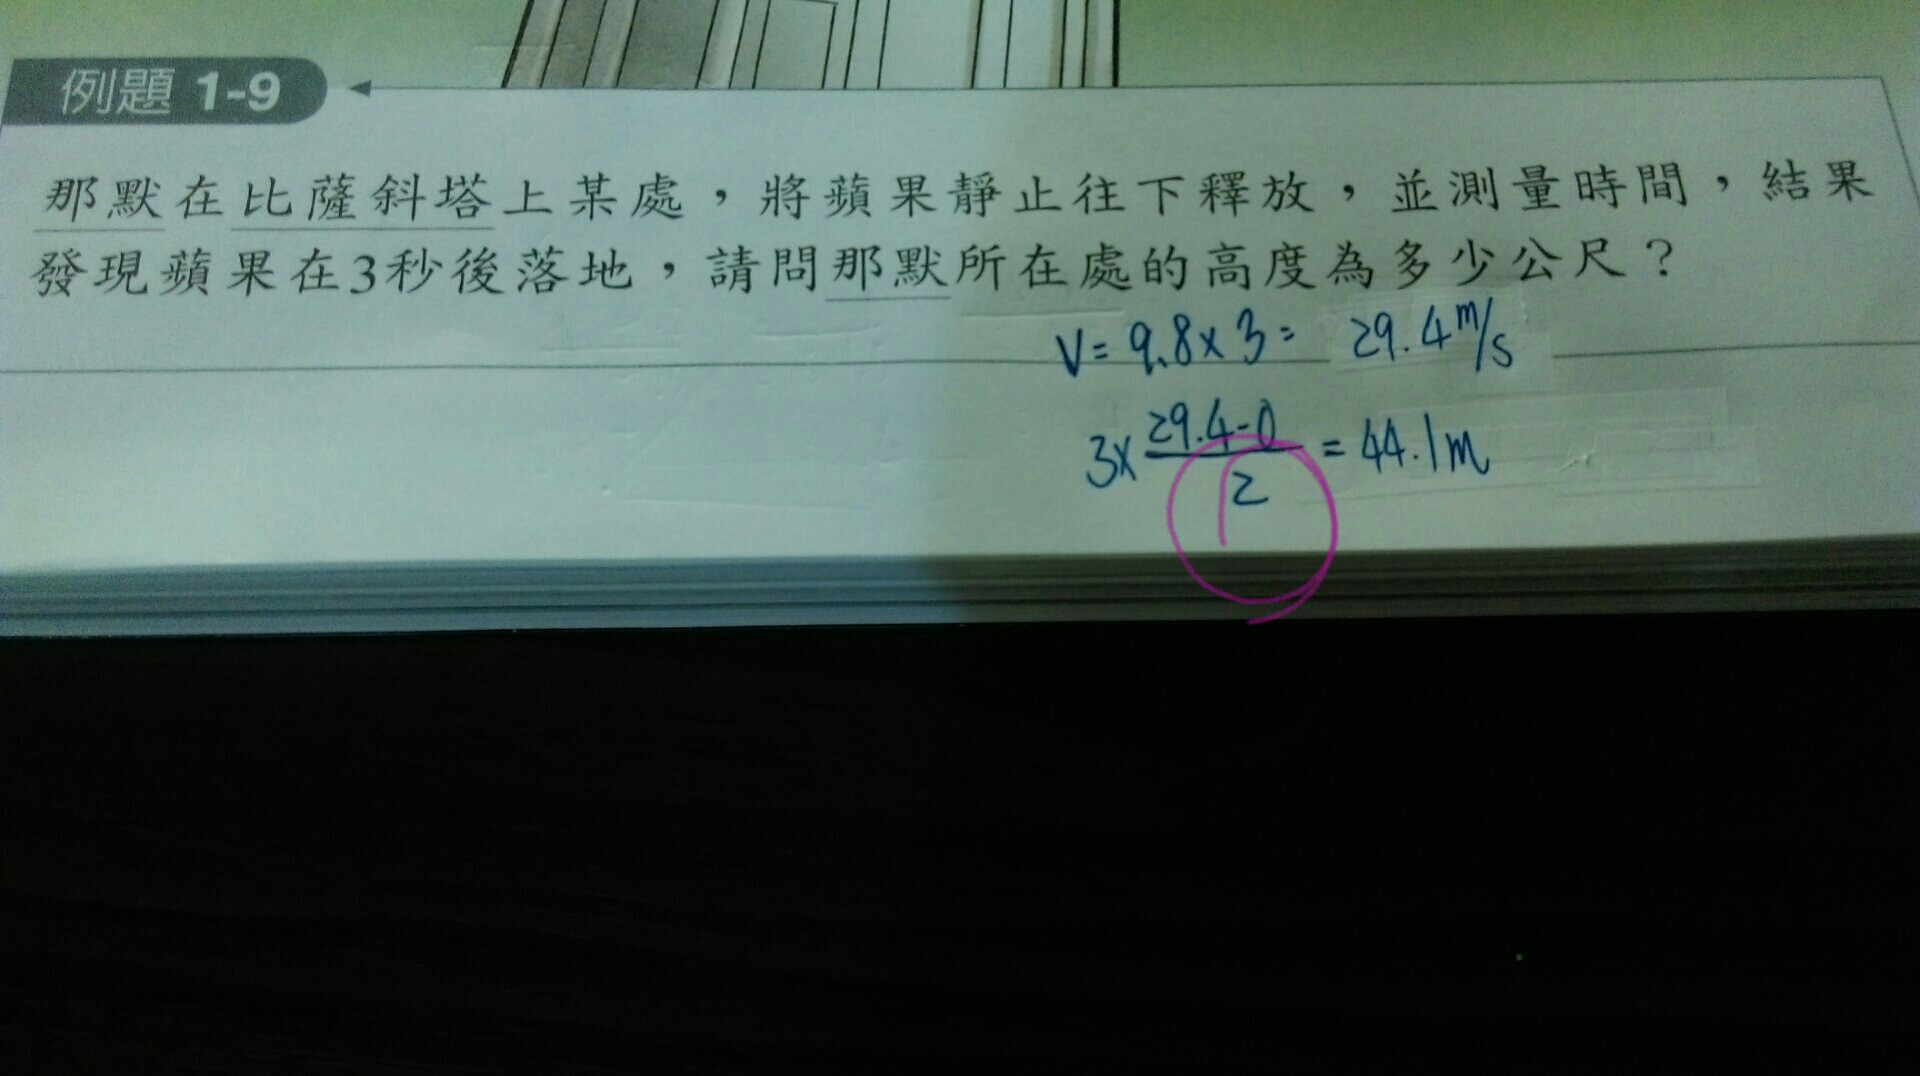 例題 1-9
那默在比薩斜塔上某處，將蘋果靜止往下釋放，並測量時間，結果
發現蘋果在3秒後落地，請問那默所在處的高度為多少公尺？
V = 9.8 × 3 = 29.4 m/s
3 × (29.4 - 0)/2 = 44.1 m